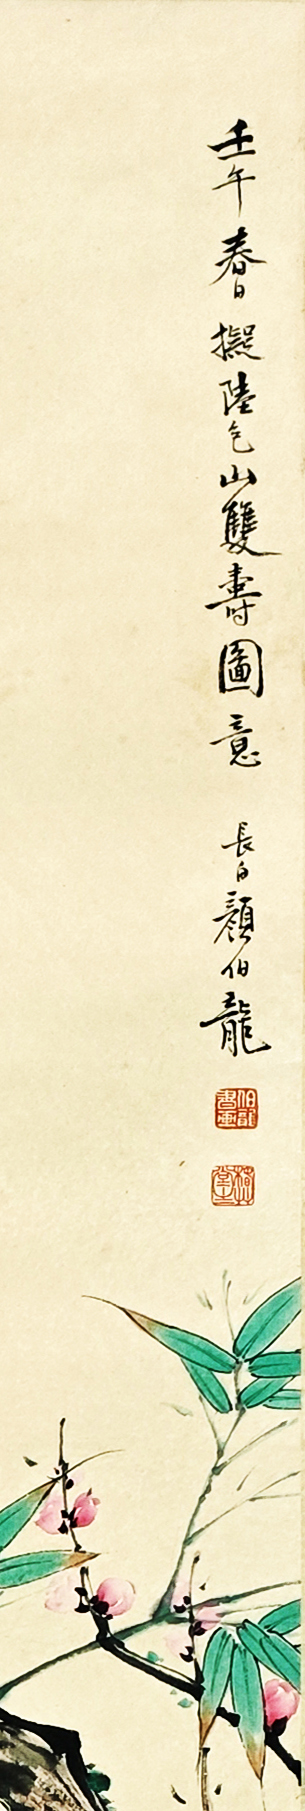 壬午春日擬陸包山雙壽圖意
長白顏伯龍
伯龍書畫